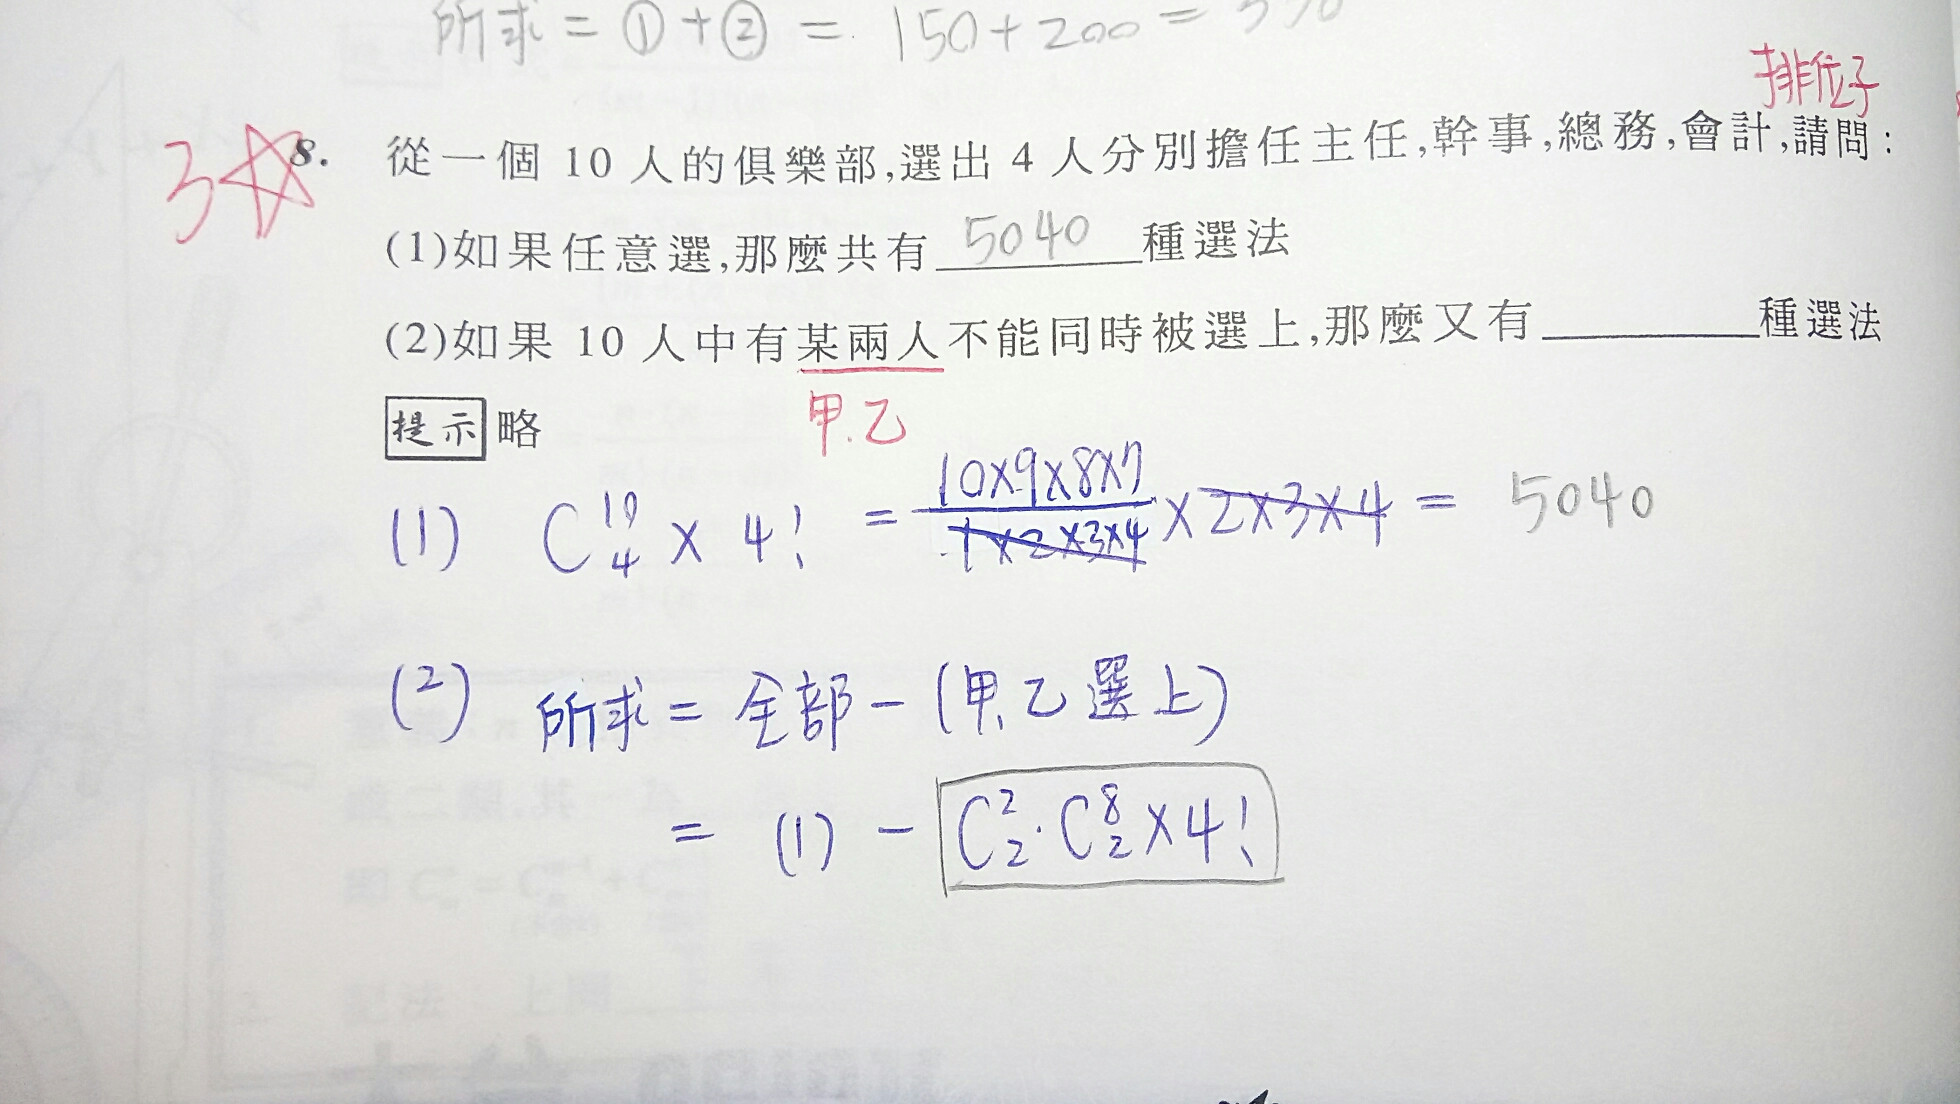 所求 = ① + ② = 150 + 200 = 350
排位子
3☆ 8. 從一個 10 人的俱樂部,選出 4 人分別擔任主任,幹事,總務,會計,請問:
(1)如果任意選,那麼共有 5040 種選法
(2)如果 10 人中有某兩人不能同時被選上,那麼又有______種選法
提示 略
甲.乙
(1) C¹⁰₄ × 4! = 10×9×8×7 / 1×2×3×4 × 2×3×4 = 5040
(2) 所求 = 全部 - (甲、乙選上)
= (1) - C²₂ · C⁸₂ × 4!